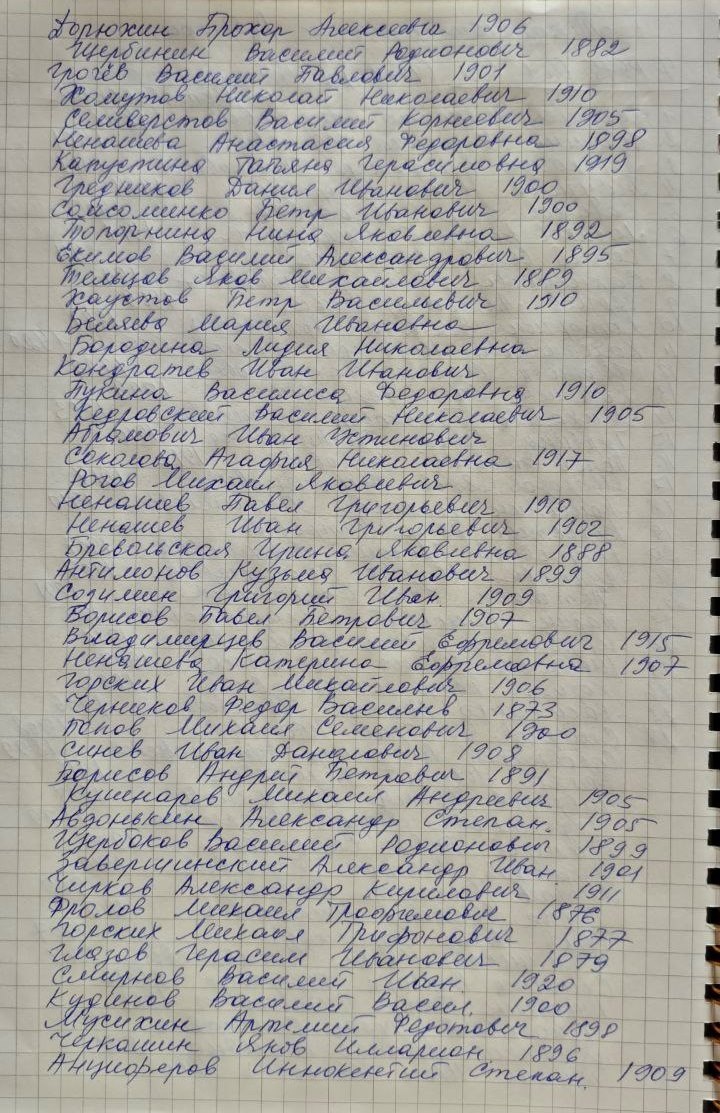 Дорюхин Прохор Алексеевич 1906
Щербинин Василий Родионович 1882
Грогев Василий Павлович 1901
Хомутов Николай Николаевич 1910
Селиверстов Василий Корнеевич 1905
Ненашева Анастасия Федоровна 1898
Капустина Татьяна Герасимовна 1919
Гредников Данил Иванович 1900
Петр Иванович 1900
Топорнина Нина Яковлевна 1892
Екимов Василий Александрович 1895
Тельцов Яков Михайлович 1889
Хаустов Петр Васильевич 1910
Беляева Мария Ивановна
Бородина Лидия Николаевна
Кондратев Иван Иванович
Пукина Василиса Федоровна 1910
Кедровский Василий Николаевич 1905
Абрамович Иван Устинович
Соколова Агафия Николаевна 1917
Рогов Михаил Яковлевич
Ненашев Павел Григорьевич 1910
Ненашев Иван Григорьевич 1902
Бревольская Ирина Яковлевна 1888
Антимонов Кузьма Иванович 1899
Григорий Иван. 1909
Борисов Павел Петрович 1907
Владимирцев Василий Ефремович 1915
Ненашева Катерина Ефремовна 1907
Горских Иван Михайлович 1906
Черников Федор Васильев 1873
Попов Михаил Семенович 1900
Синев Иван Данилович 1908
Борисов Андрей Петрович 1891
Кушнарев Михаил Андреевич 1905
Авдонькин Александр Степан. 1905
Щербаков Василий Родионович 1899
Завершинский Александр Иван 1901
Чирков Александр Кирилович 1911
Фролов Михаил Трофимович 1876
Горских Михаил Трифонович 1877
Глазов Герасим Иванович 1879
Смирнов Василий Иван. 1920
Кудинов Василий Васил. 1900
Мусихин Артемий Федотович 1898
Черкашин Яков Илларион. 1896
Анциферов Иннокентий Степан. 1909